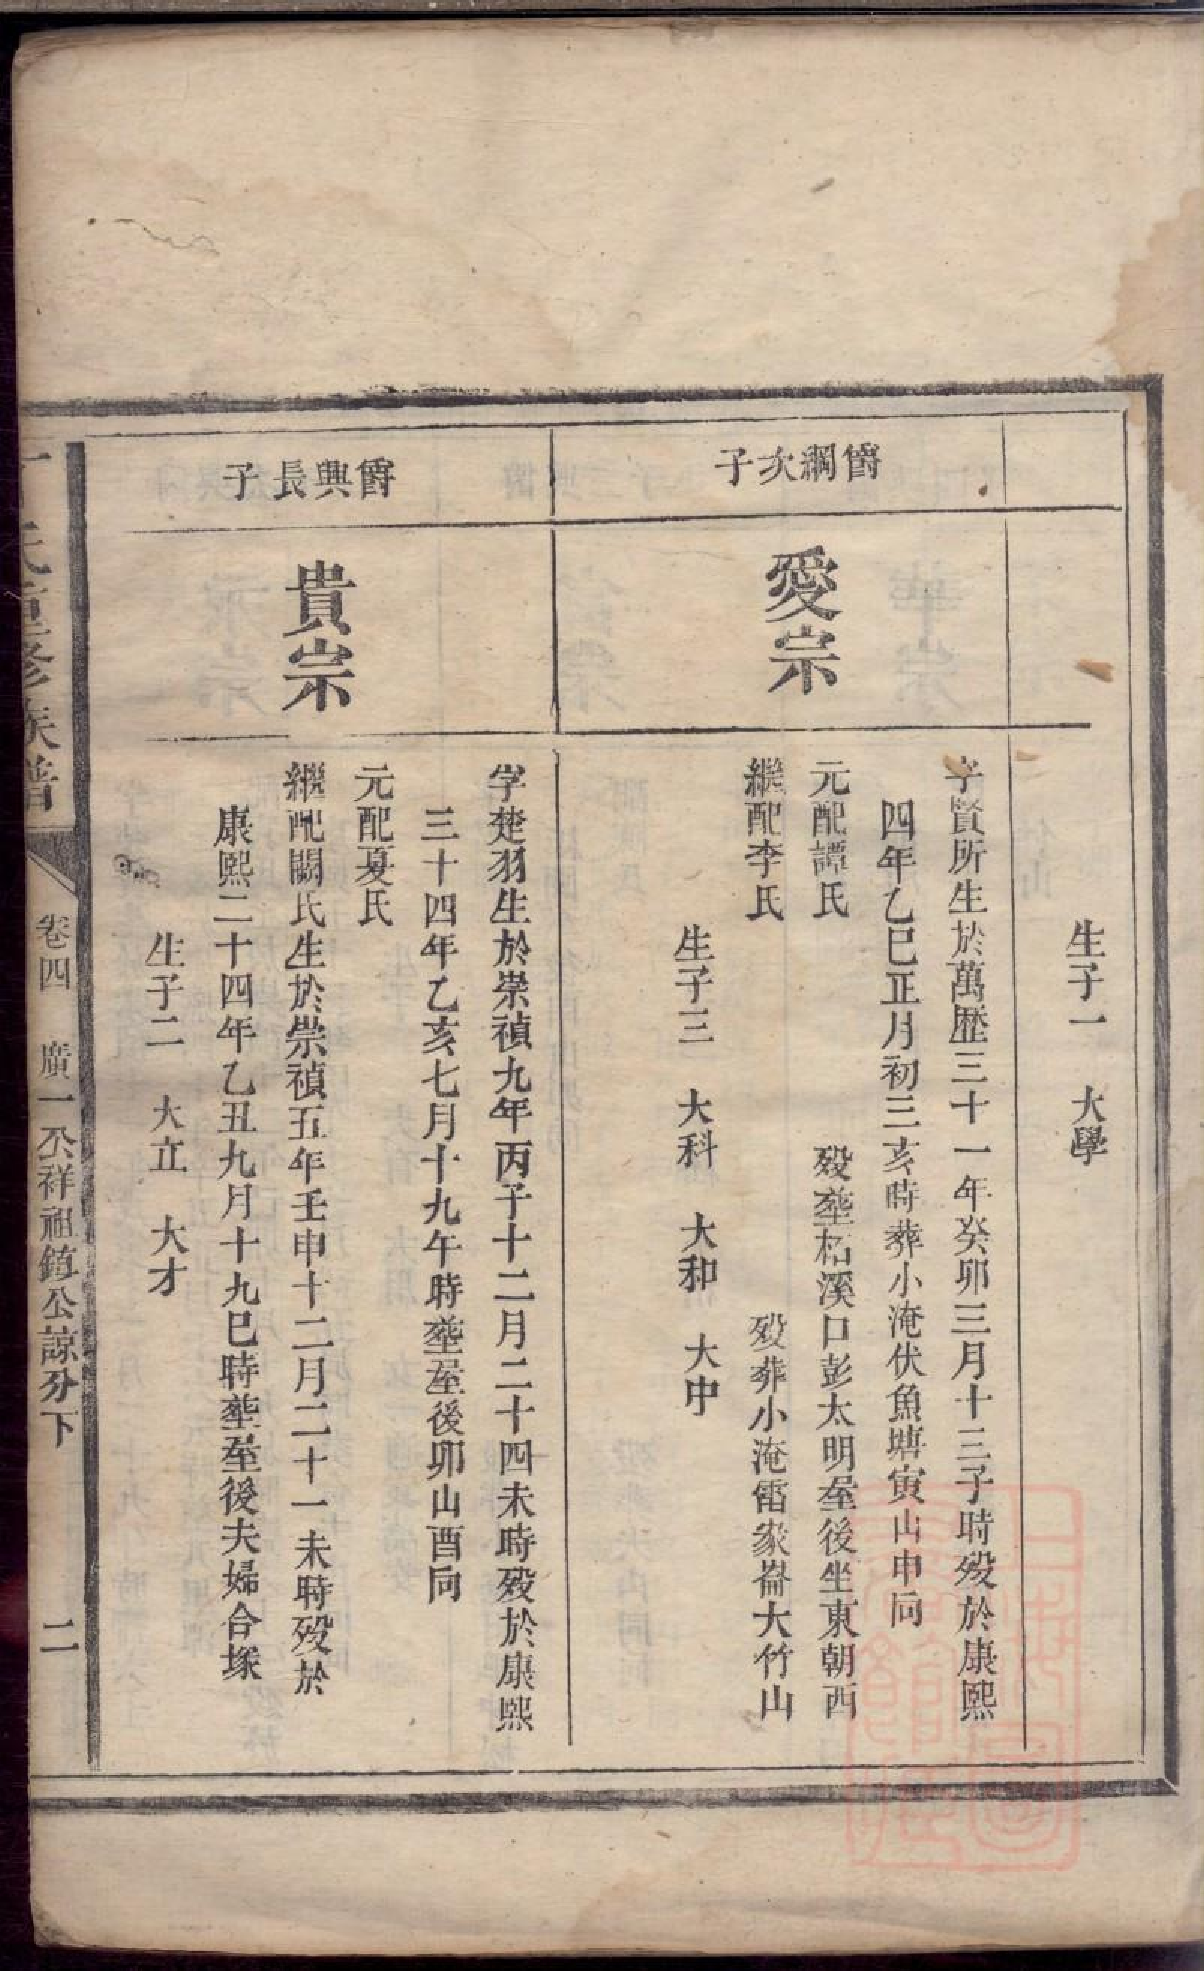 生子一 大學
爵綱次子
愛宗
字賢所生於萬歷三十一年癸卯三月十三子時殁於康熙
四年乙巳正月初三亥時葬小淹伏魚塘寅山申向
元配譚氏 殁塟柘溪口彭太明屋後坐東朝西
繼配李氏 殁葬小淹雷家崙大竹山
生子三 大科 大和 大中
爵興長子
貴宗
字楚羽生於崇禎九年丙子十二月二十四未時殁於康熙
三十四年乙亥七月十九午時塟屋後卯山酉向
元配夏氏
繼配闕氏生於崇禎五年壬申十二月二十一未時殁於
康熙二十四年乙丑九月十九巳時塟屋後夫婦合塚
生子二 大立 大才
氏重修族譜
卷四 廣一公祥祖鎮公諒分下
二